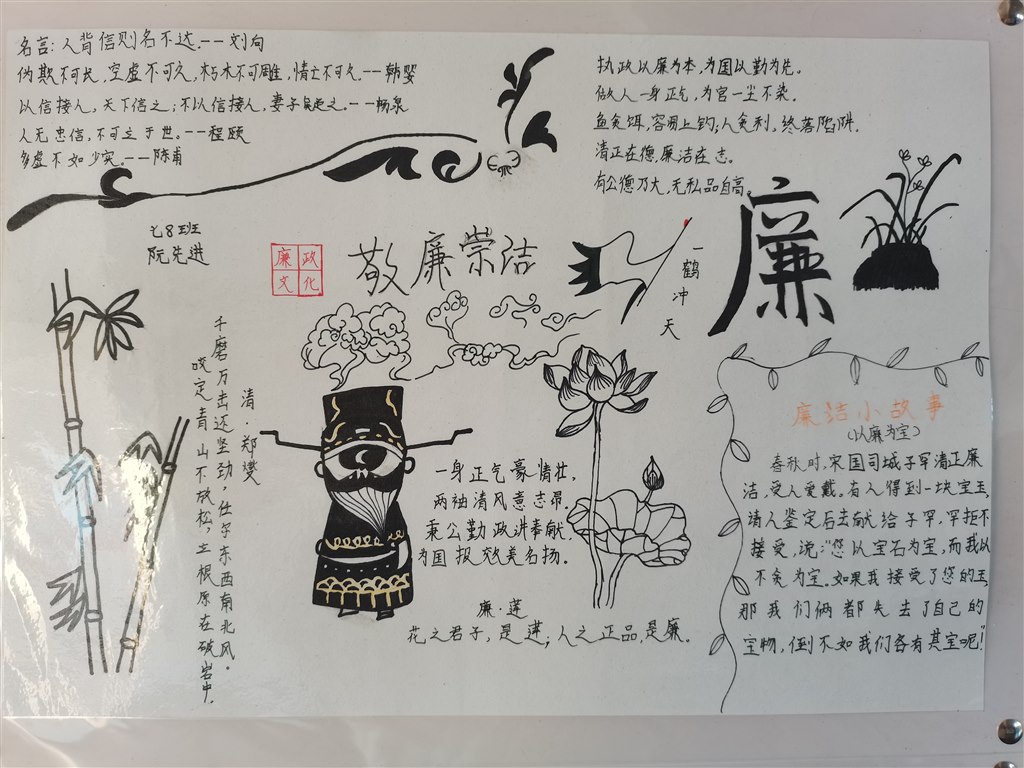 名言:人背信则名不达.--刘向
伪欺不可长,空虚不可久,朽木不可雕,情亡不可久.--韩婴
以信接人,天下信之;不以信接人,妻子疑之.--杨泉
人无忠信,不可立于世.--程颐
多虚不如少实.--陈甫
执政以廉为本,为国以勤为先.
做人一身正气,为官一尘不染.
鱼贪饵,容易上钓;人贪利,终落陷阱.
清正在德,廉洁在志.
有公德乃大,无私品自高.
七8班
阮先进
廉政
文化
敬廉崇洁
一鹤冲天
廉
清·郑燮
千磨万击还坚劲,任尔东西南北风.
咬定青山不放松,立根原在破岩中.
一身正气豪情壮,
两袖清风意志昂.
秉公勤政讲奉献,
为国报效美名扬.
廉·莲
花之君子,是莲;人之正品,是廉.
廉洁小故事
(以廉为宝)
春秋时,宋国司城子罕清正廉
洁,受人爱戴.有人得到一块宝玉,
请人鉴定后去献给子罕,罕拒不
接受,说:"您以宝石为宝,而我以
不贪为宝.如果我接受了您的玉,
那我们俩都失去了自己的
宝物,倒不如我们各有其宝呢!"